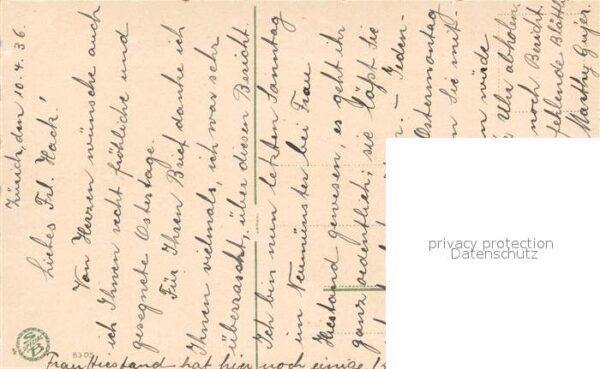 Zürich den 10.4.36.
Liebes Frl. Hack!
Von Herzen wünsche auch
ich Ihnen recht fröhliche und
gesegnete Ostertage.
Für Ihren Brief danke ich
Ihnen vielmals, ich war sehr
überrascht, über diesen Bericht.
Ich bin nun letzten Sonntag
im Neumünster bei Frau
Hiestand gewesen, es geht ihr
ganz ordentlich; sie läßt Sie
r. – Jeden-
Ostermontag
n Sie mit
n würde
Uhr abholen.
noch Bericht.
fehlende Blättli
Marthy Gujer
Frau Hiestand hat hier noch einige
83 05
privacy protection
Datenschutz